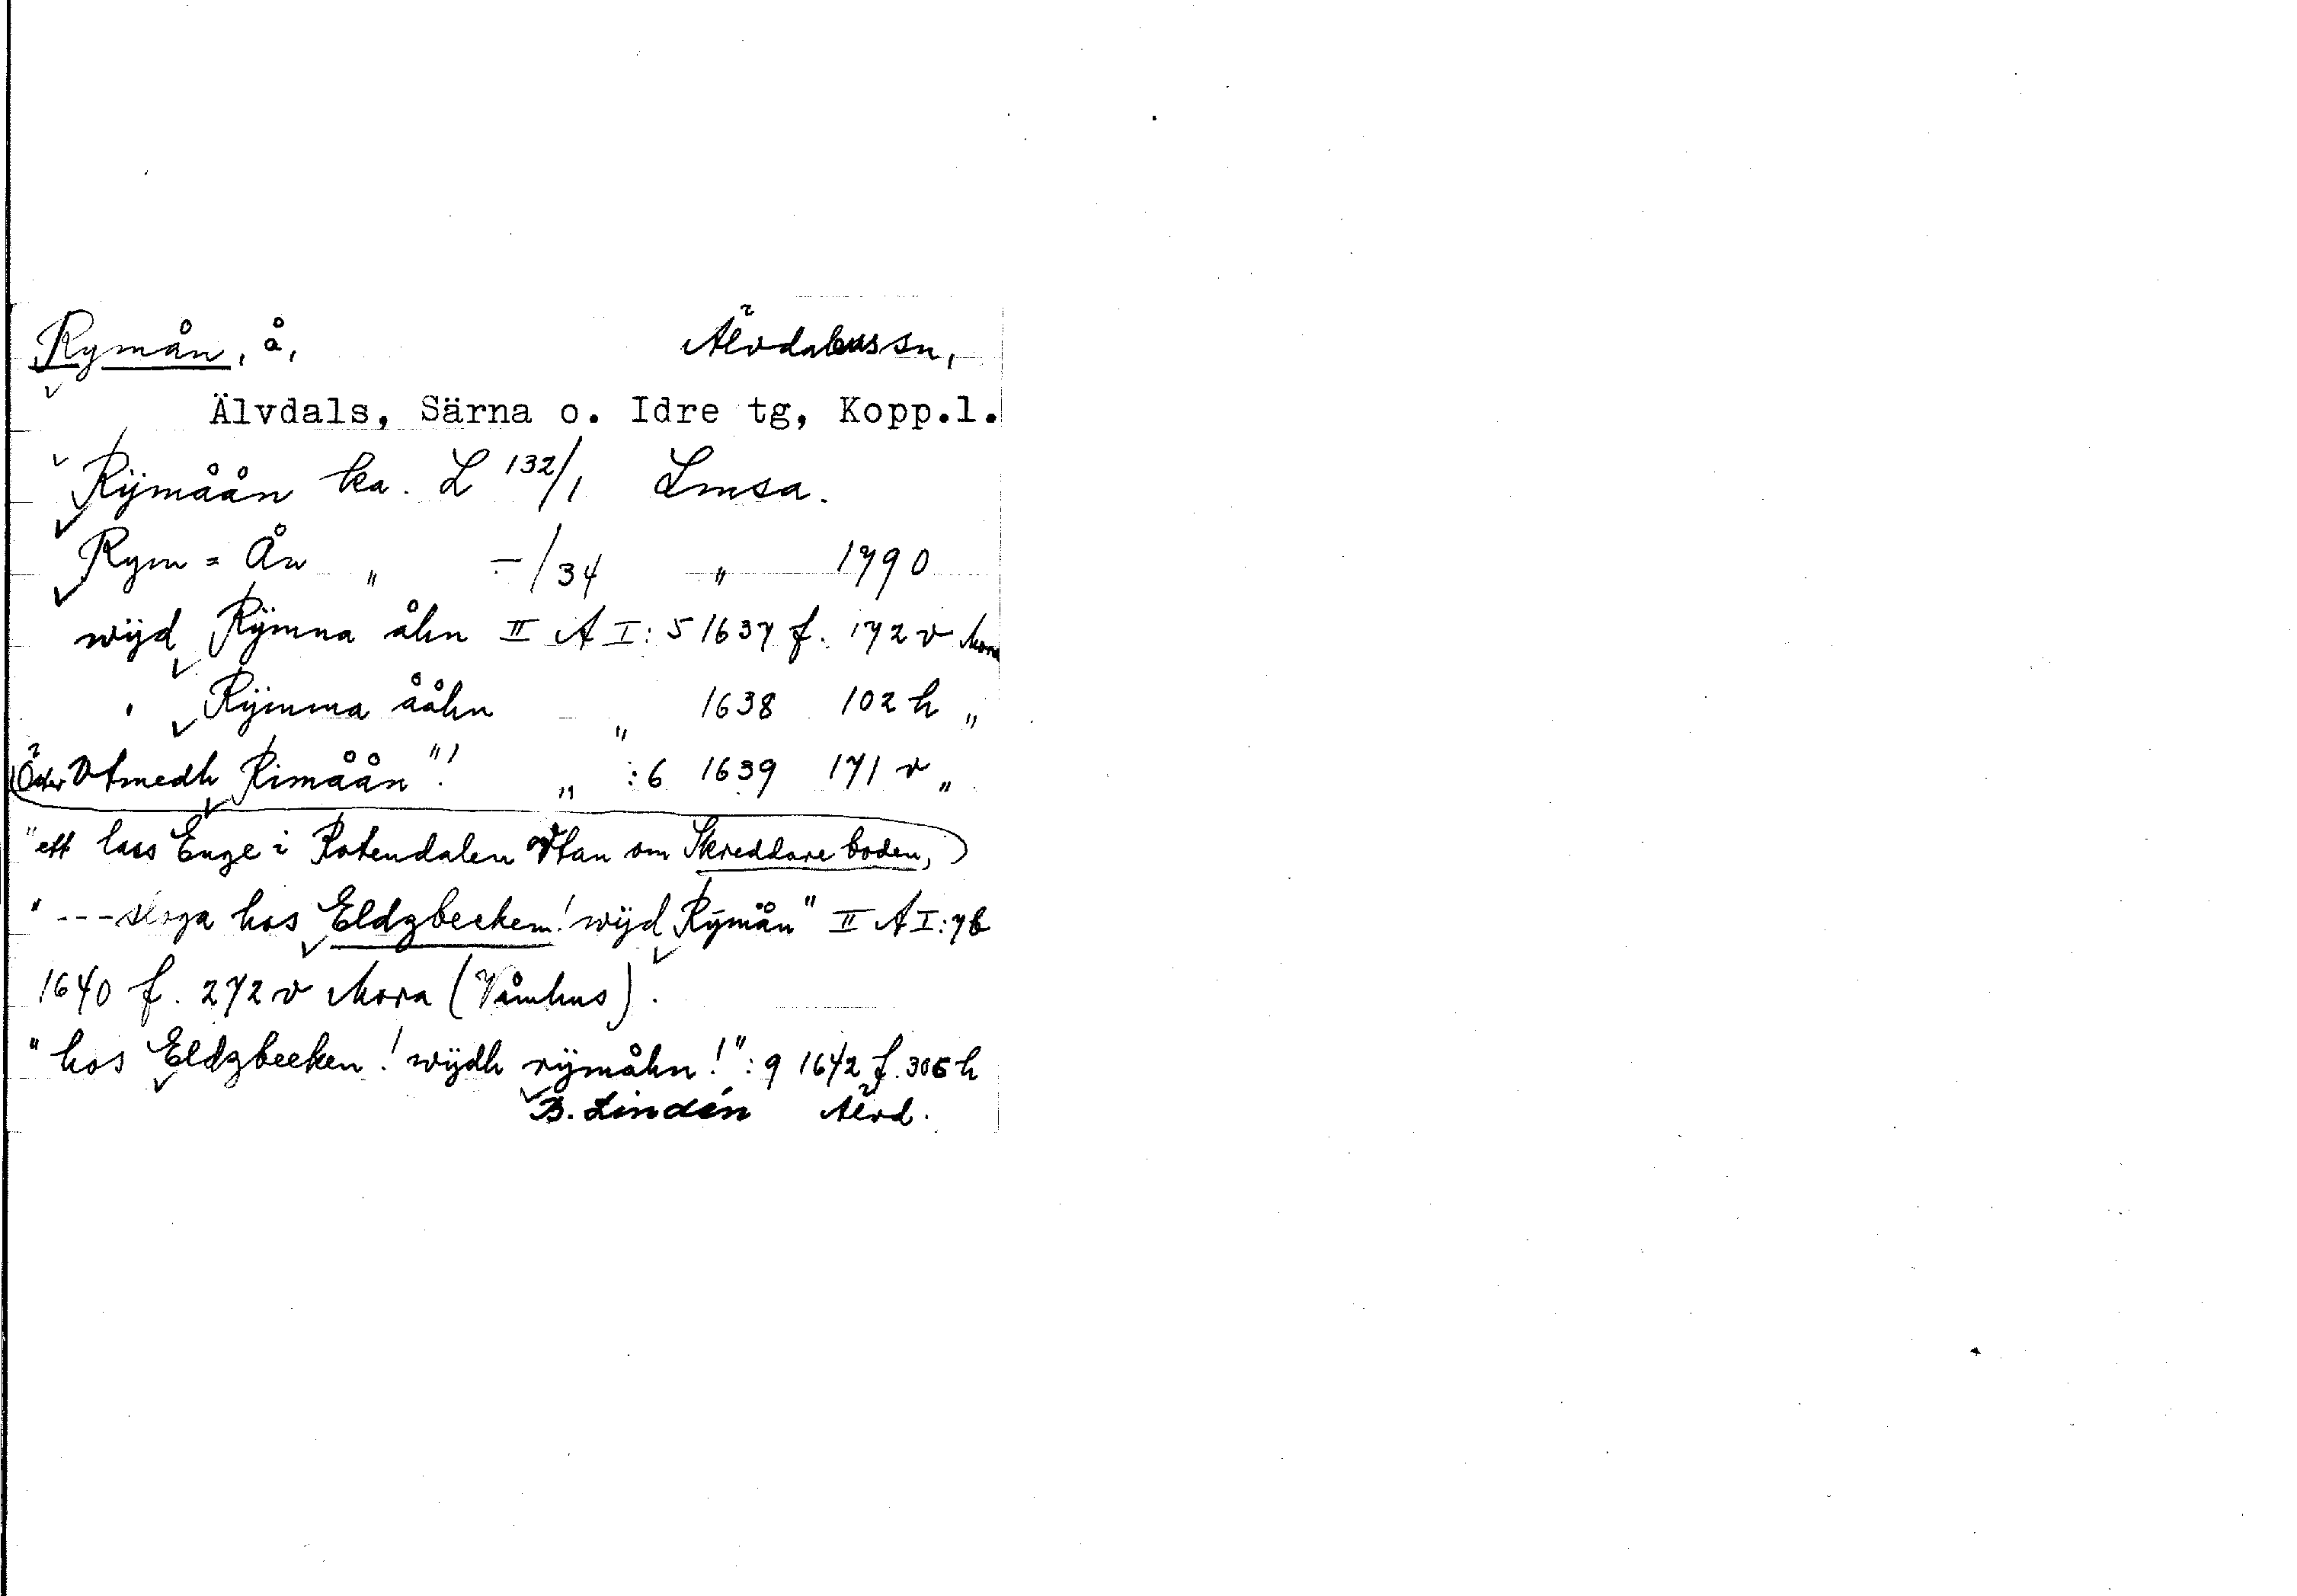 Rymån, å, Älvdalens sn,
Älvdals, Särna o. Idre tg, Kopp.l.
Rÿmåån ka. L 132/1 Lmsa.
Rym = Ån " -/34 " 1790
wijd Rÿmna åhn II A I: 5 1637 f. 172 v Mora
" Rÿmma ååhn " 1638 102 h "
Vtmedh Rimåån"! " :6 1639 171 v "
"ett lass Enge i Rotendalen Vtan om Skreddare boden,)
" --- sloga hos Eldzbecken! wijd Rÿmån" II A I: 7b
1640 f. 272 v Mora (Våmhus).
"hos Eldzbecken! wijdh rÿmåhn!": 9 1642 f. 305 h
B. Lindén Älvd.